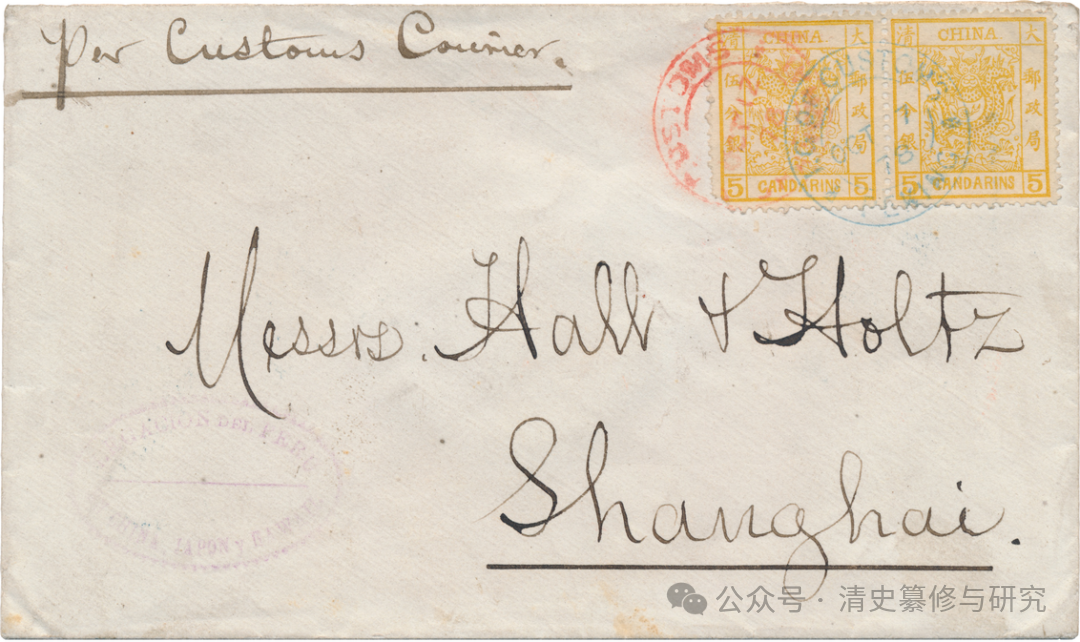 Per Customs Courier.
大清郵政局
CHINA
伍分銀
5 CANDARINS 5
大清郵政局
CHINA
伍分銀
5 CANDARINS 5
CUSTOMS
OCT 1
78
Messrs. Hall & Holtz
Shanghai.
DEL PERU
CHINA, JAPON Y
公众号 · 清史纂修与研究